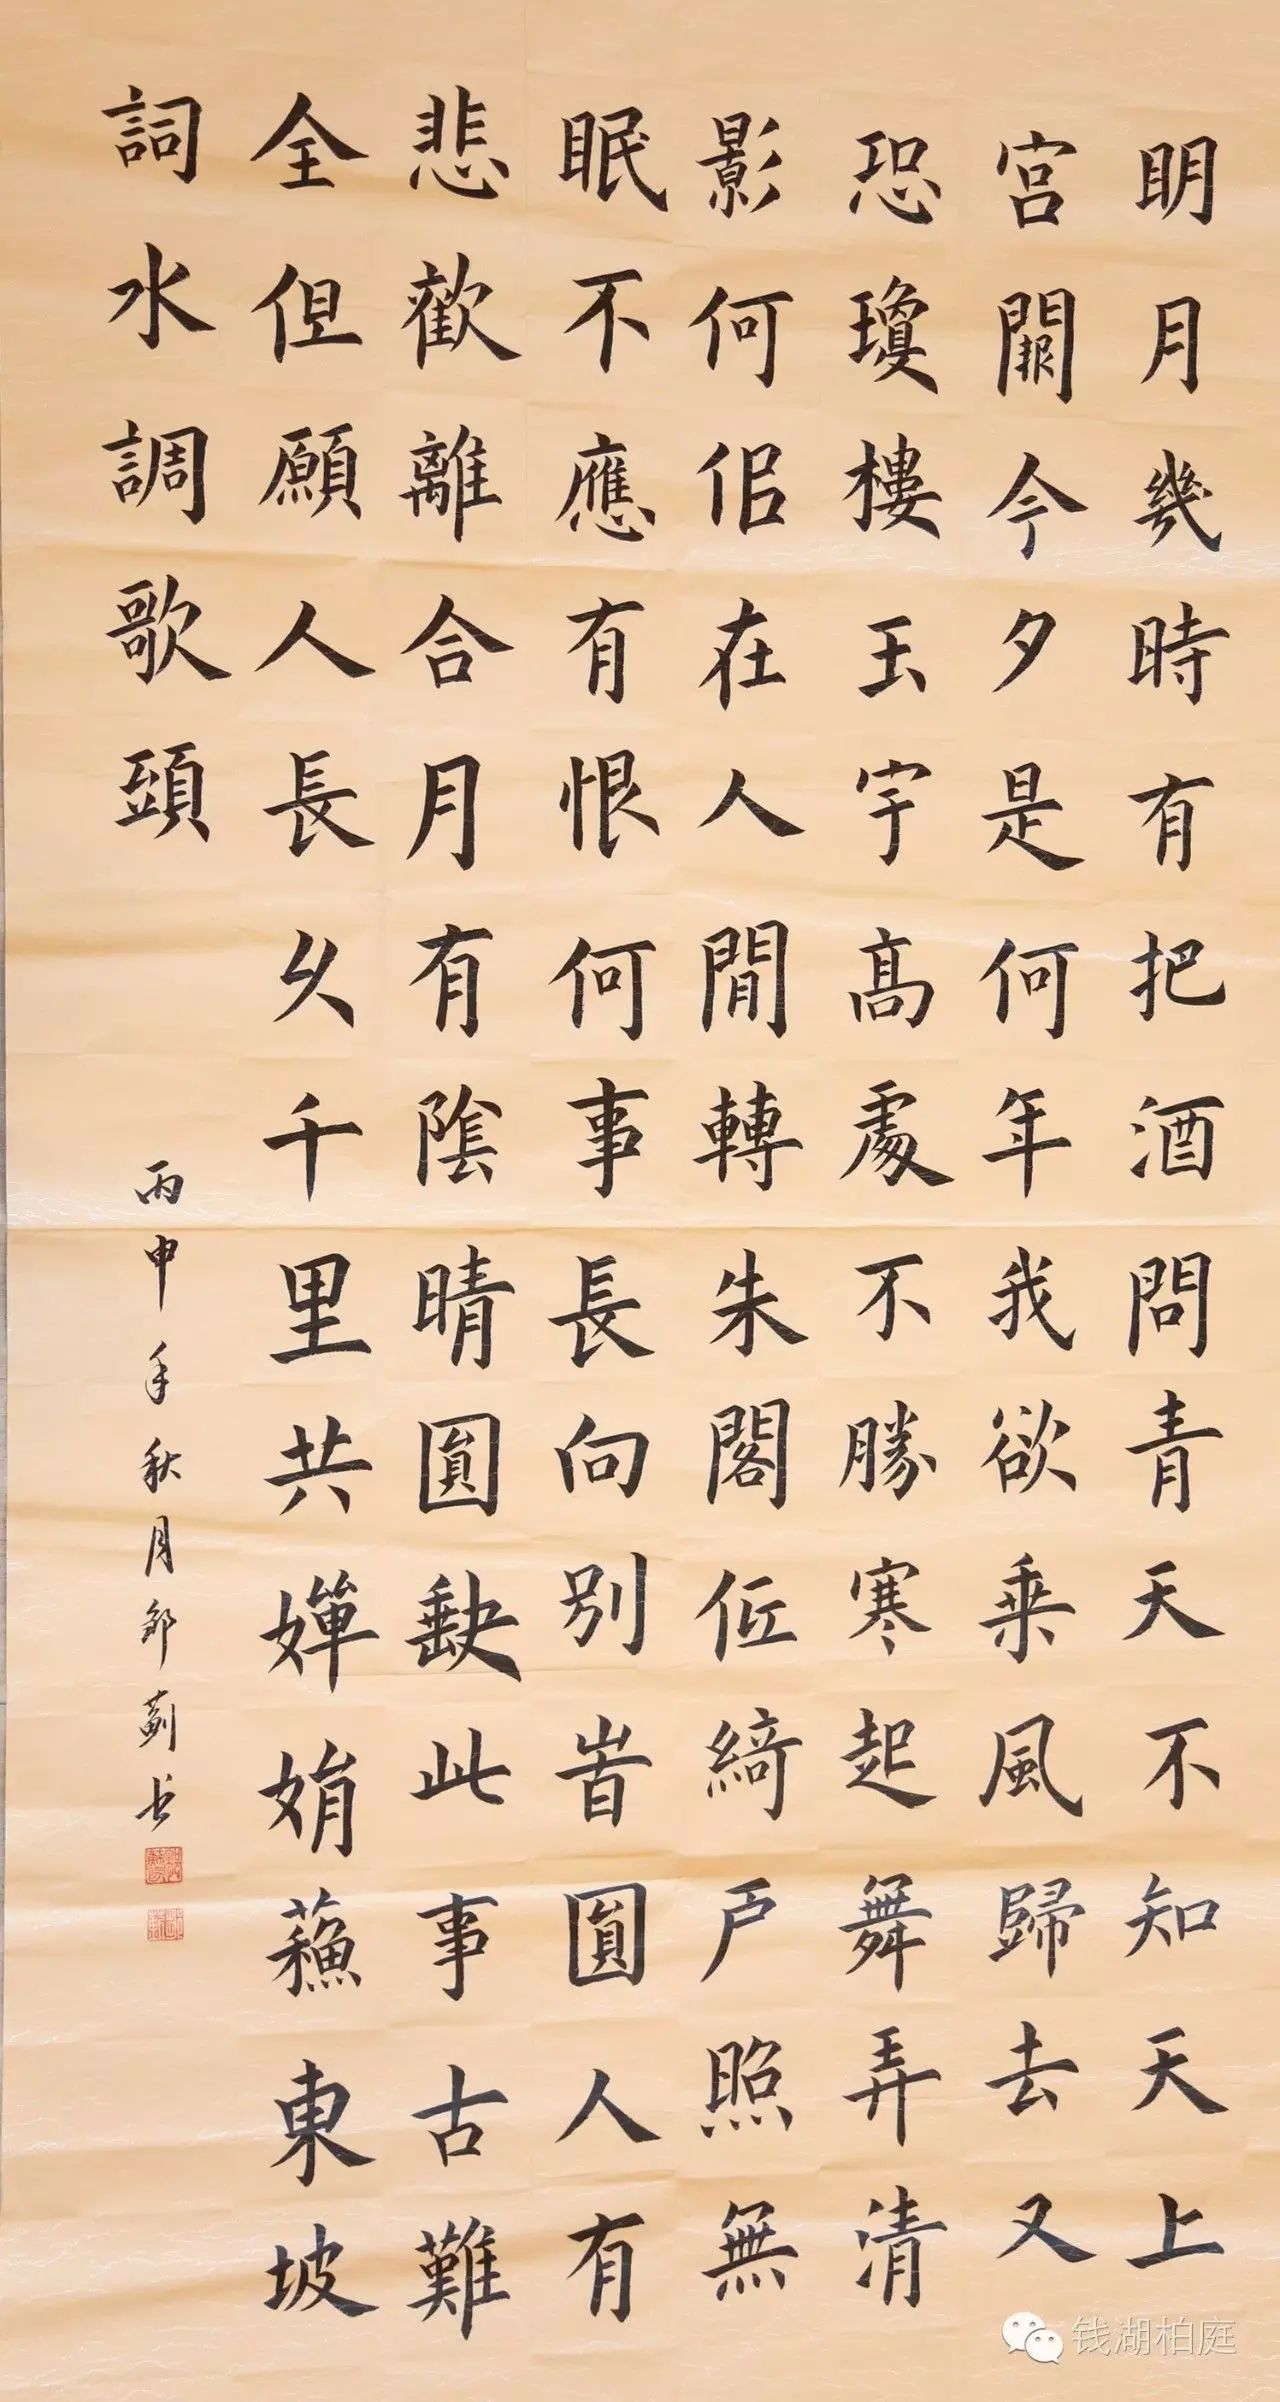 明月幾時有把酒問青天不知天上
宮闕今夕是何年我欲乗風歸去又
恐瓊樓玉宇高處不勝寒起舞弄清
影何佀在人間轉朱閣低綺戶照無
眠不應有恨何事長向別旹圓人有
悲歡離合月有陰晴圓缺此事古難
全但願人長久千里共嬋娟蘇東坡
詞水調歌頭
丙申年秋月邹剑书
钱湖柏庭